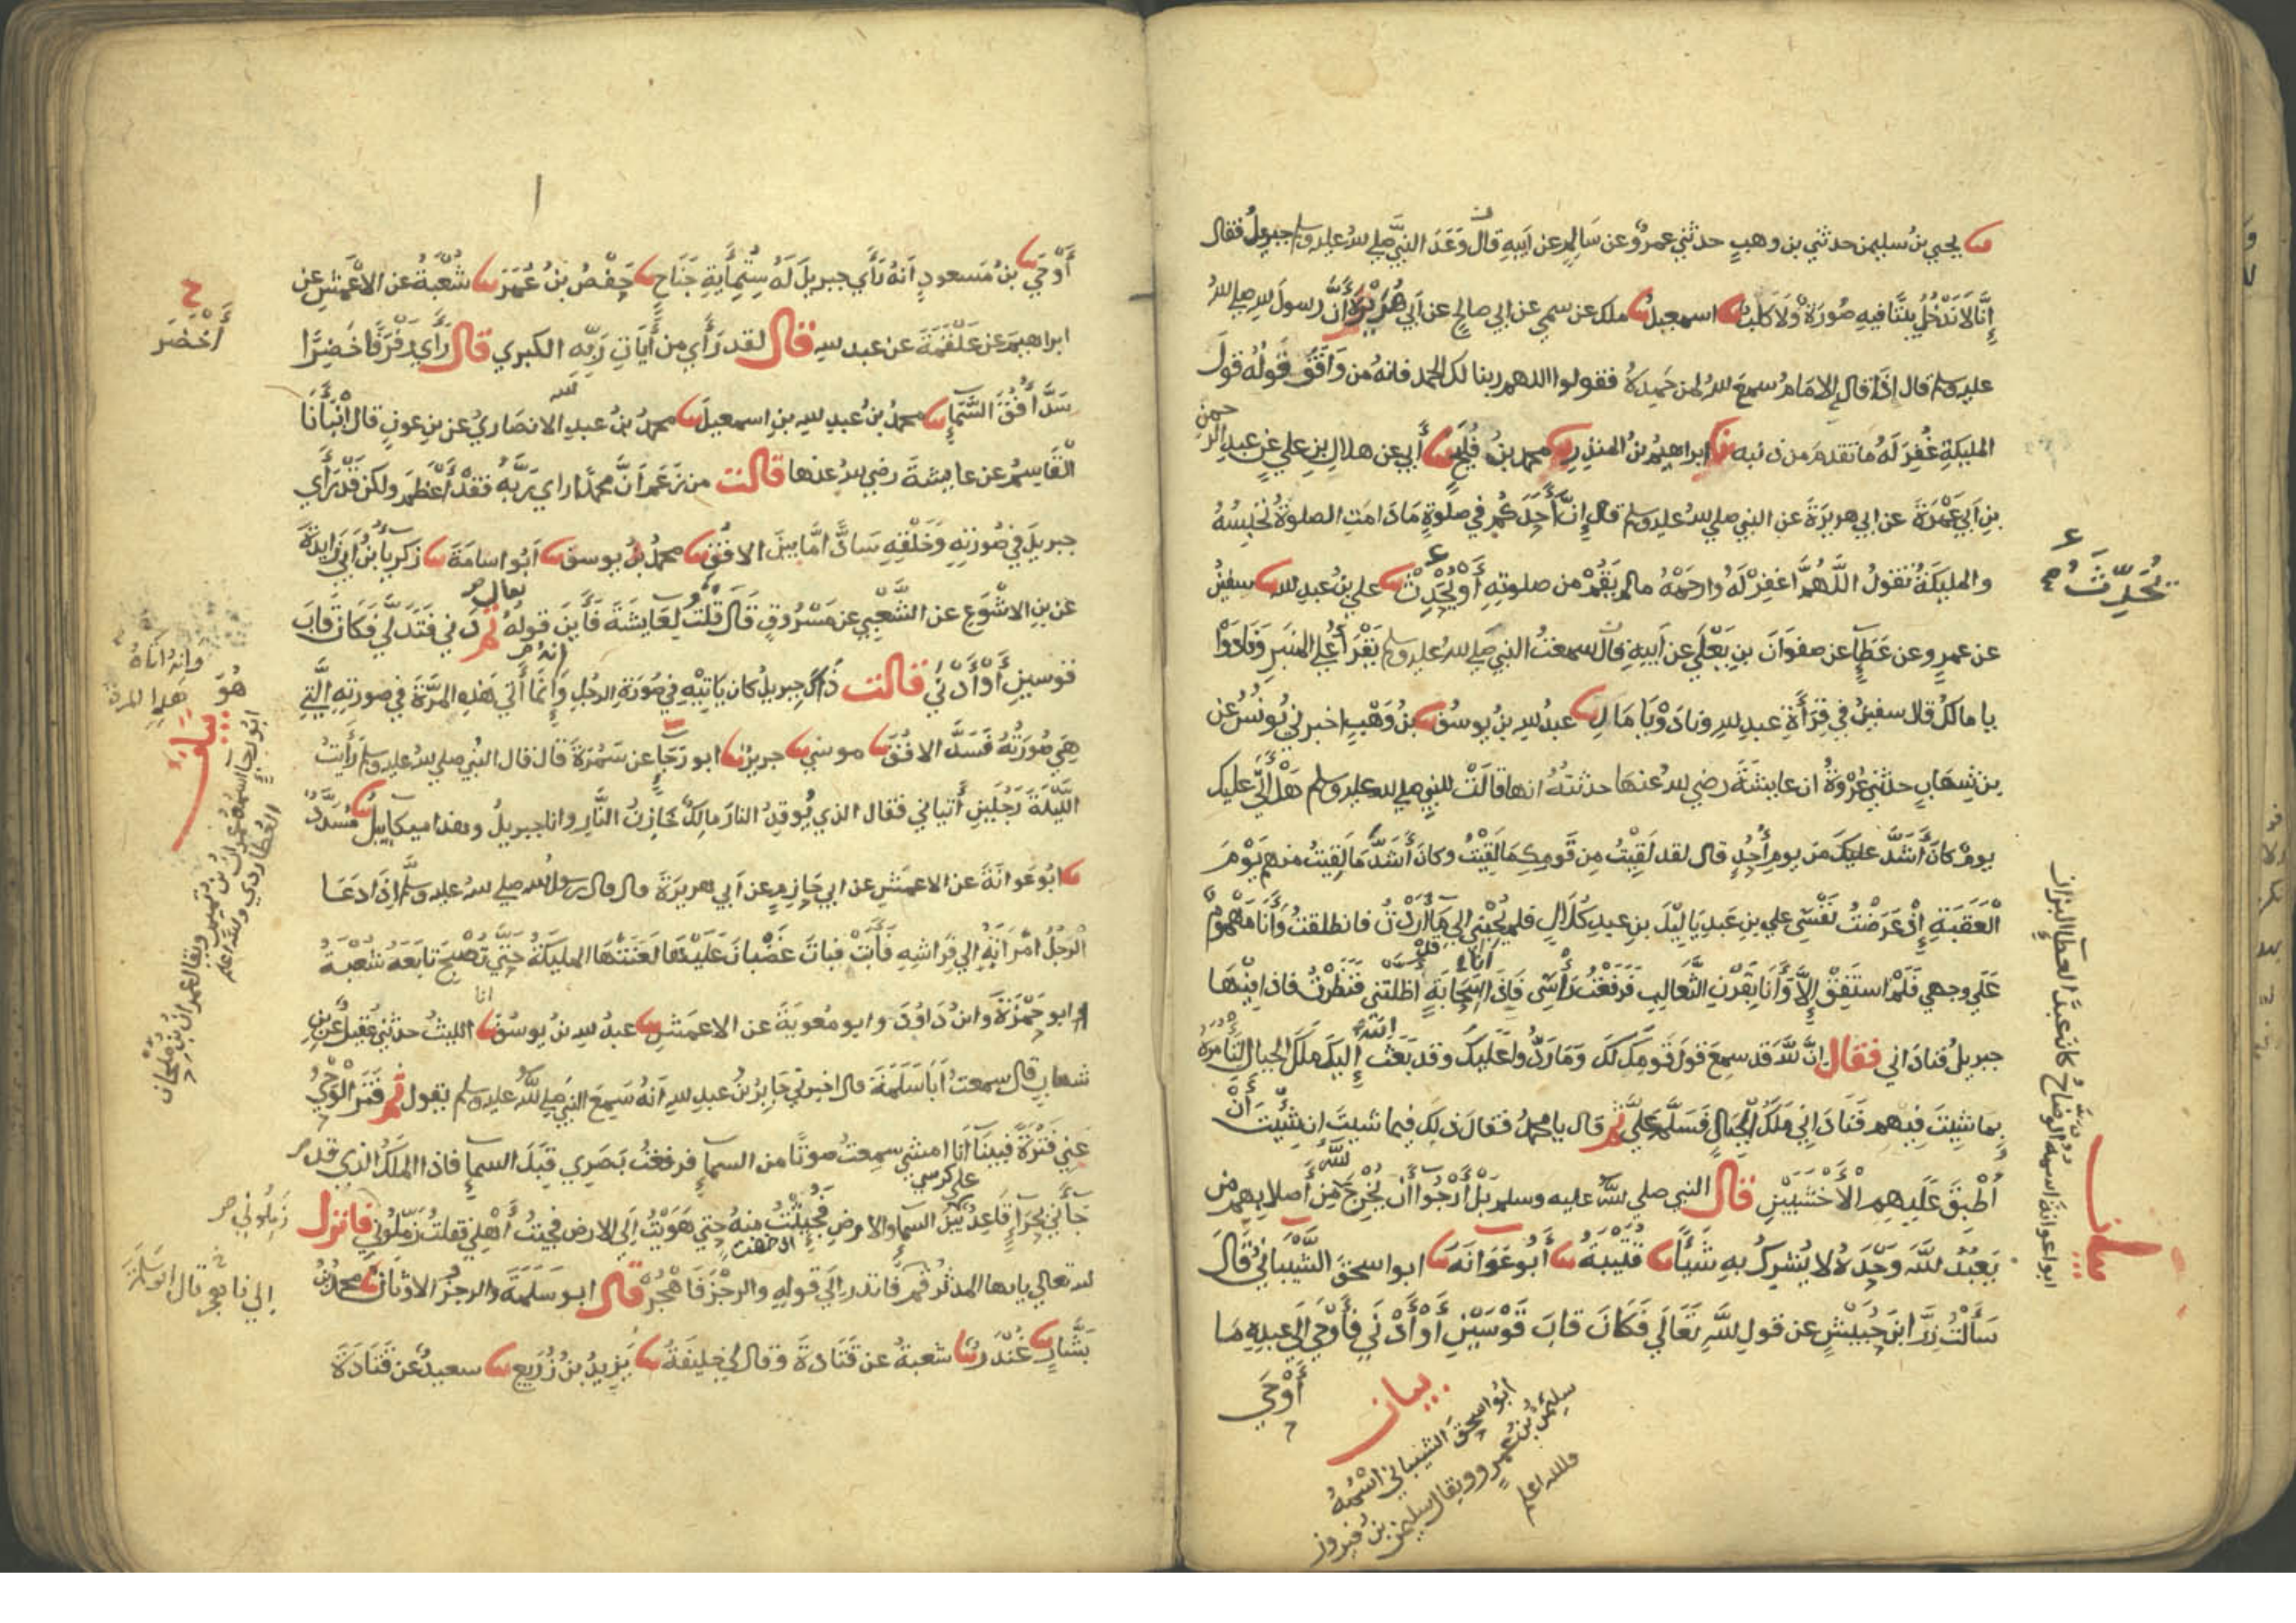 ثنا يحيى بنُ سليمن حدثني بن وهبٍ حدثني عمرٌو عن سَالِمٍ عن اَبيهِ قال وَعَدَ النبيَّ صلى الله عليه وسلم جبريلُ فقال
إِنَّا لَا نَدْخُلُ بَيْتًا فيهِ صُورَةٌ وَلَا كَلبٌ ثنا اسمعيلُ ثنا ملك عن سمي عن ابي صالحٍ عن اَبي هُرَيْرَةَ أَنَّ رسولَ الله صلى الله
عليه وسلم قال اِذَا قال الامَامُ سمعَ اللهُ لمن حَمِدَهُ فقولوا اللهم ربنا لك الحمد فانه مَن وَافَقَ قَولُهُ قولَ
المليكةِ غُفِرَ لَهُ ما تقدمَ من ذنبه ثنا ابراهيمُ بنُ المنذرِ ثنا محمد بنُ فُليحٍ ثنا أَبي عن هلالِ بنِ عليٍ عن عبدِ الرحمن
بنِ اَبي عَمْرَةَ عن ابي هريرَةَ عن النبي صلى الله عليه وسلم قال إنَّ أَحَدَكُم في صلوةٍ مَا دَامَتِ الصلوةُ تَحْبِسُهُ
والمليكَةُ تقولُ اللَّهُمَّ اغفِرْ لَهُ وارحَمْهُ مالم يَقُمْ من صلوتِهِ أَوْ يُحْدِثْ ثنا علي بنُ عبدِ الله ثنا سفينُ
عن عمرٍو عن عَطَآءٍ عن صفوَانَ بنِ يَعْلَى عن اَبيهِ قال سمعتُ النبيَ صلى الله عليه وسلم يَقْرَأُ عَلى المنبَرِ وَنَادَوْا
يا مالكُ قال سفينُ في قِرَأَةِ عبدِ اللهِ ونادَوْا يَا مَالِ ثنا عبدُ اللهِ بنُ يوسُفَ ثنا بنُ وَهْبٍ اخبرني يُونُسُ عن
بن شِهَابٍ حدثني عُرْوَةُ ان عايشَةَ رضي الله عنها حدثتهُ انها قالَتْ للنبي صلى الله عليه وسلم هَلْ أَتَى عليك
يومٌ كانَ أَشَدَّ عليكَ من يومِ أُحُدٍ قال لقد لَقِيْتُ مِن قَومِكِ مَا لَقِيْتُ وكانَ أَشَدَّ مَا لَقِيتُ منهم يَوْمَ
الْعَقَبَةِ إِذْ عَرَضْتُ نَفْسِي علي بن عَبدِ يَا لِيْلَ بنِ عبدِ كُلَالٍ فلم يُجِبْنِي الى مَا أَرَدْتُ فانطلقتُ وَأَنَا مَهْمُومٌ
عَلَى وجهي فَلَمْ استَفِقْ إِلَّا وَأَنَا بِقَرْنِ الثَّعالِبِ فَرَفَعْتُ رَأْسِي فَإِذَا أنا بسَحَابَةٍ قد اظلتني فَنَظَرْتُ فاذا فِيْهَا
جبريلُ فنادَاني فقال إنَّ اللهَ قد سمِعَ قولَ قَومِكَ لك وَمَا رَدُّوا عَلَيْكَ وقد بَعَثَ اللهُ إِليكَ مَلَكَ الجبالِ لِتَأمُرَهُ
بِما شِيتَ فِيهم فَنَادَانِي مَلَكُ الجِبَالِ فَسَلَّمَ عَلَيَّ ثم قال يا محمدُ فقال ذلِكَ فيما شيتَ ان شِيْتَ أَنْ
أُطْبِقَ عَلَيهِمِ الأَخْشَبَيْنِ قال النبي صلى الله عليه وسلم بَلْ أَرْجُوا أَن يُخْرِجَ اللهُ مِن أصلابهم مَن
يَعْبُدُ اللهَ وَحْدَهُ لا يُشرِكُ بهِ شَيْأً ثنا قُتَيْبَةُ ثنا أَبُو عَوَانَةَ ثنا ابو اسحقَ الشَّيْبَانِيُّ قَالَ
سَأَلْتُ زِرَّ ابنَ حُبَيشٍ عن قولِ اللهِ تَعَالَى فَكَانَ قَابَ قَوْسَيْنِ أَوْ أَدْنَى فَأَوْحَى إِلَى عبدِهِ مَا
أَوْحَى
تُحَدِّثْ
بيان
ابوا عوانة اسمه الوضاحُ كان عبدَ العطآءِ البزاز
بيان
ابُو اسحقَ الشيباني اسْمُهُ
سليمنُ بنُ عمرٍو ويقال سليمن بن فيروز
والله اعلم
أَوْحَى ثنا بنُ مَسعودٍ اَنهُ رَأَى جبريلَ لَهُ سِتُّمِأَيةِ جَنَاحٍ ثنا حَفْصُ بنُ عُمَرَ ثنا شُعْبَةُ عن الأعْمَشِ عن
ابراهيمَ عن عَلْقَمَةَ عن عبد الله قال لقد رَأَى من أَيَاتِ رَبِّهِ الكبرى قال رَأَى رَفْرَفًا خَضِرًا
سَدَّ أُفُقَ السَّمَاءِ ثنا محمدُ بنُ عبدِ اللهِ بنِ اسمعيلَ ثنا محمدُ بنُ عبدِ الله الانصَاريُّ عن بنِ عونٍ قال أَنْبَأَنَا
الْقَاسِمُ عن عايشةَ رضي الله عنها قالت من زَعَمَ أنَّ محمدًا راى رَبَّهُ فقدْ أَعْظَمَ ولكن قَدْ رَأَى
جبريلَ في صُورتِهِ وَخَلْقِهِ سَادًّا مَّا بينَ الافُقِ ثنا محمدُ بنُ يوسفَ ثنا اَبُو اسامَةَ ثنا زكرِيآءُ بنُ أَبي زَايدَةَ
عن بنِ الاشْوَعِ عن الشَّعْبِيِ عن مَسْرُوقٍ قَالَ قُلْتُ لِعَايشَةَ فَأَينَ قولُهُ تعالى ثم دَنى فَتَدَلَّى فَكَانَ قَابَ
قوسينِ أَوْ أَدْنَى قالت ذَاكَ جبريلُ كان يَاتِيْهِ في صُورَةِ الرجُلِ وَإِنَّمَا أَتَى هَذِهِ المرَّةَ في صورتِهِ الَّتِي
هِيَ صُورَتُهُ فَسَدَّ الافُقَ ثنا موسى ثنا جريرٌ ثنا ابو رَجَاءٍ عن سَمُرَةَ قال قال النبي صلى الله عليه وسلم رَأَيتُ
اللَّيْلَةَ رَجُلَينِ أَتيانِي فقال الذي يُوقِدُ النارَ مالِكٌ خَازِنُ النَّارِ وانا جبريلُ وهذا ميكاييلُ ثنا مُسَدَّدٌ
ثنا ابُو عَوَانَةَ عن الاعمَشِ عن ابي حَازِمٍ عن اَبي هريرَةَ قال قال رسولُ الله صلى الله عليه وسلم اِذَا دَعَا
الرجُلُ امْرَاَتَهُ الى فِرَاشِهِ فَأَبَتْ فبَاتَ غَضْبَانَ عَلَيْهَا لَعَنَتْهَا المليكَةُ حَتَّى تُصْبِحَ تابَعَهُ شُعْبَةُ
وابو حَمْزَةَ وابن دَاوُدَ وابو مُعويَةَ عن الاعمَشِ ثنا عبدُ اللهِ بنُ يُوسُفَ انا الليثُ حدثني عُقَيلٌ عن بنِ
شهابٍ قال سمعتُ أَبَا سَلَمَةَ قال اخبرني جَابِرُ بنُ عبدِ اللهِ اَنهُ سَمِعَ النبيَ صلى الله عليه وسلم يقول ثم فَتَرَ الْوَحْيُ
عَنِّي فَتْرَةً فَبينَا أَنَا امشي سمعتُ صوتًا من السمآءِ فرفعْتُ بَصَرِي قِبَلَ السمآءِ فاذا الملَكُ الذي قد
جَأَنِي بِحِرَآءٍ قَاعِدٌ على كرسيٍ بَيْنَ السمآءِ والارضِ فَجُئِثْتُ منهُ حتى هَوَيْتُ إِلَى الارضِ فجِيتُ أَهْلِي فقلتُ زَمِّلُونِي فانزل
الله تعالى يايها المدثر قم فانذر إِلَى قولهِ والرجْزَ فَاهْجُرْ قال ابو سَلَمَةَ والرجزُ الاوثانُ ثنا محمدُ بنُ
بَشَّارٍ ثنا غُنْدَرٌ ثنا شعبةُ عن قَتَادَةَ وقال لي خليفَةُ ثنا يَزِيدُ بنُ زُرَيعٍ ثنا سعيدٌ عن قَتَادَةَ
أَخْضَرَ
وانه اتاهُ
هَذِهِ المرةَ
هُوَ
بيان
ابُو رجاءٍ اسمُهُ عمران بن تميم ويقال عمران بن مِلْحَان
العُطَارِدي والله اعلم
زَمِّلُونِي
الى فاهجر قال ابو سَلَمَةَ